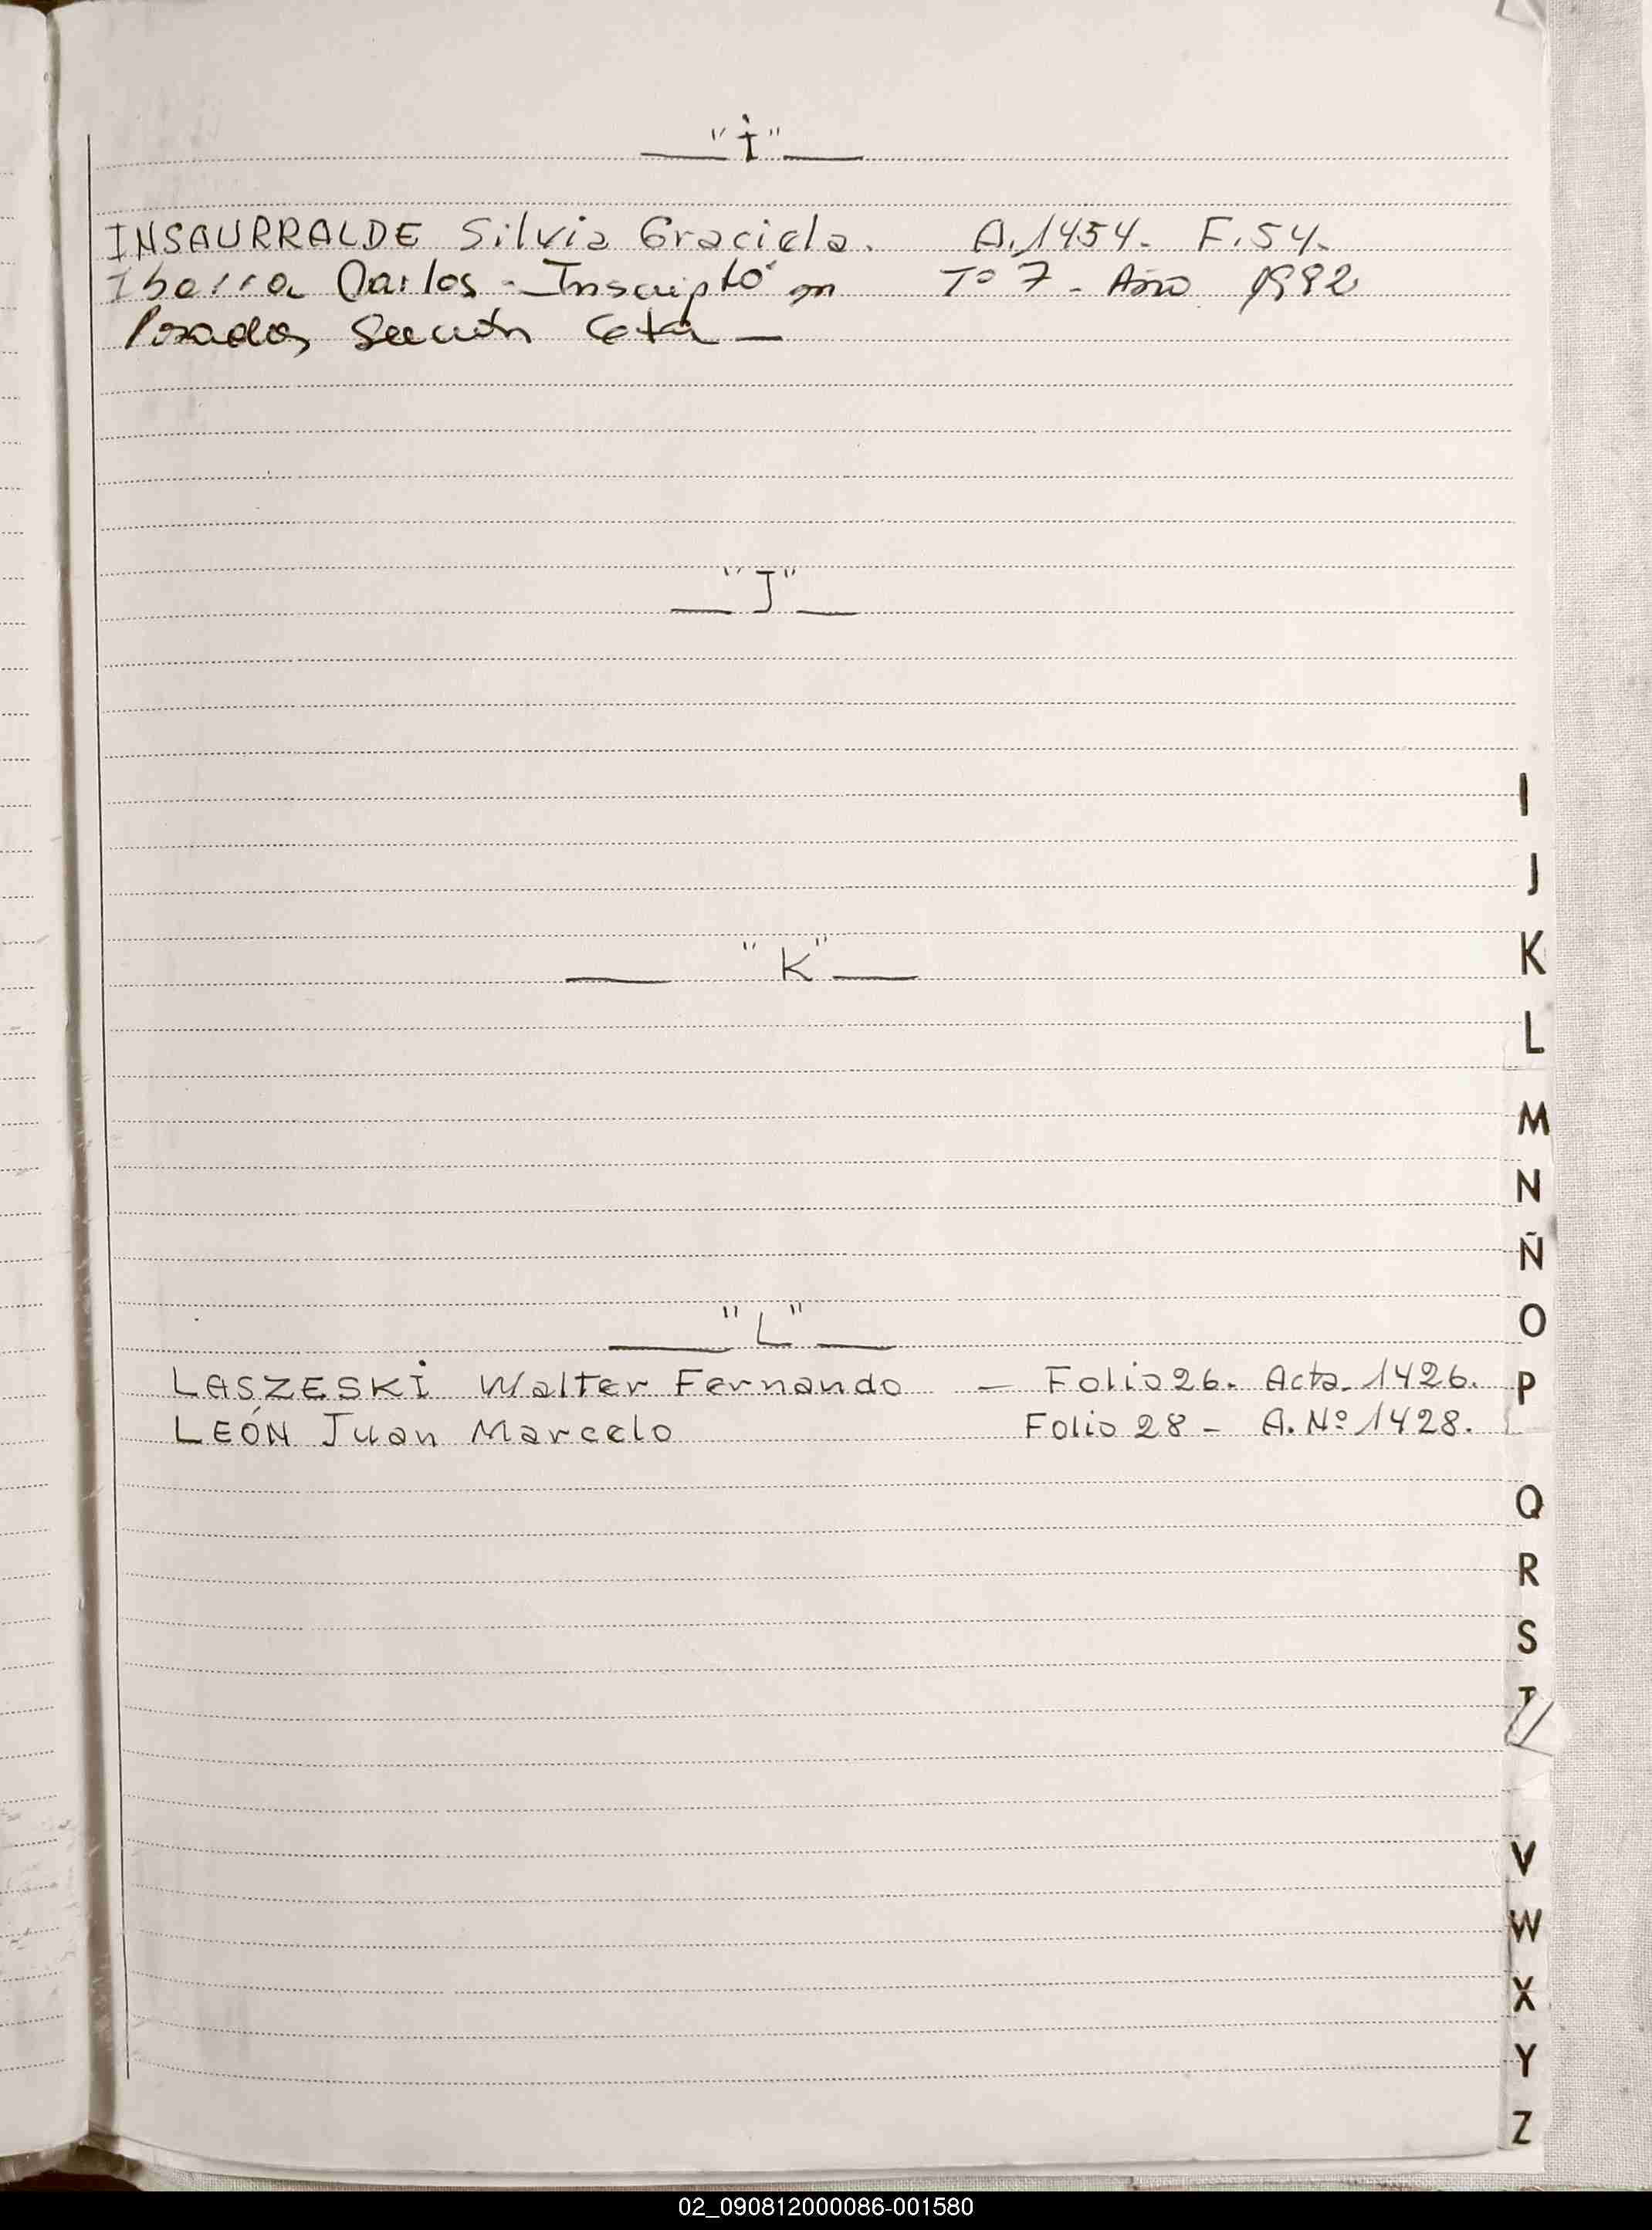 "I"
INSAURRALDE Silvia Graciela. A. 1454. F. 54.
Ibarra Carlos - Inscripto en Tº 7 - Año 1982
Posadas Sección 6ta -
"J"
"K"
"L"
LASZESKI Walter Fernando - Folio 26. Acta. 1426.
LEÓN Juan Marcelo Folio 28 - A. Nº 1428.
I
J
K
L
M
N
Ñ
O
P
Q
R
S
T
V
W
X
Y
Z
02_090812000086-001580